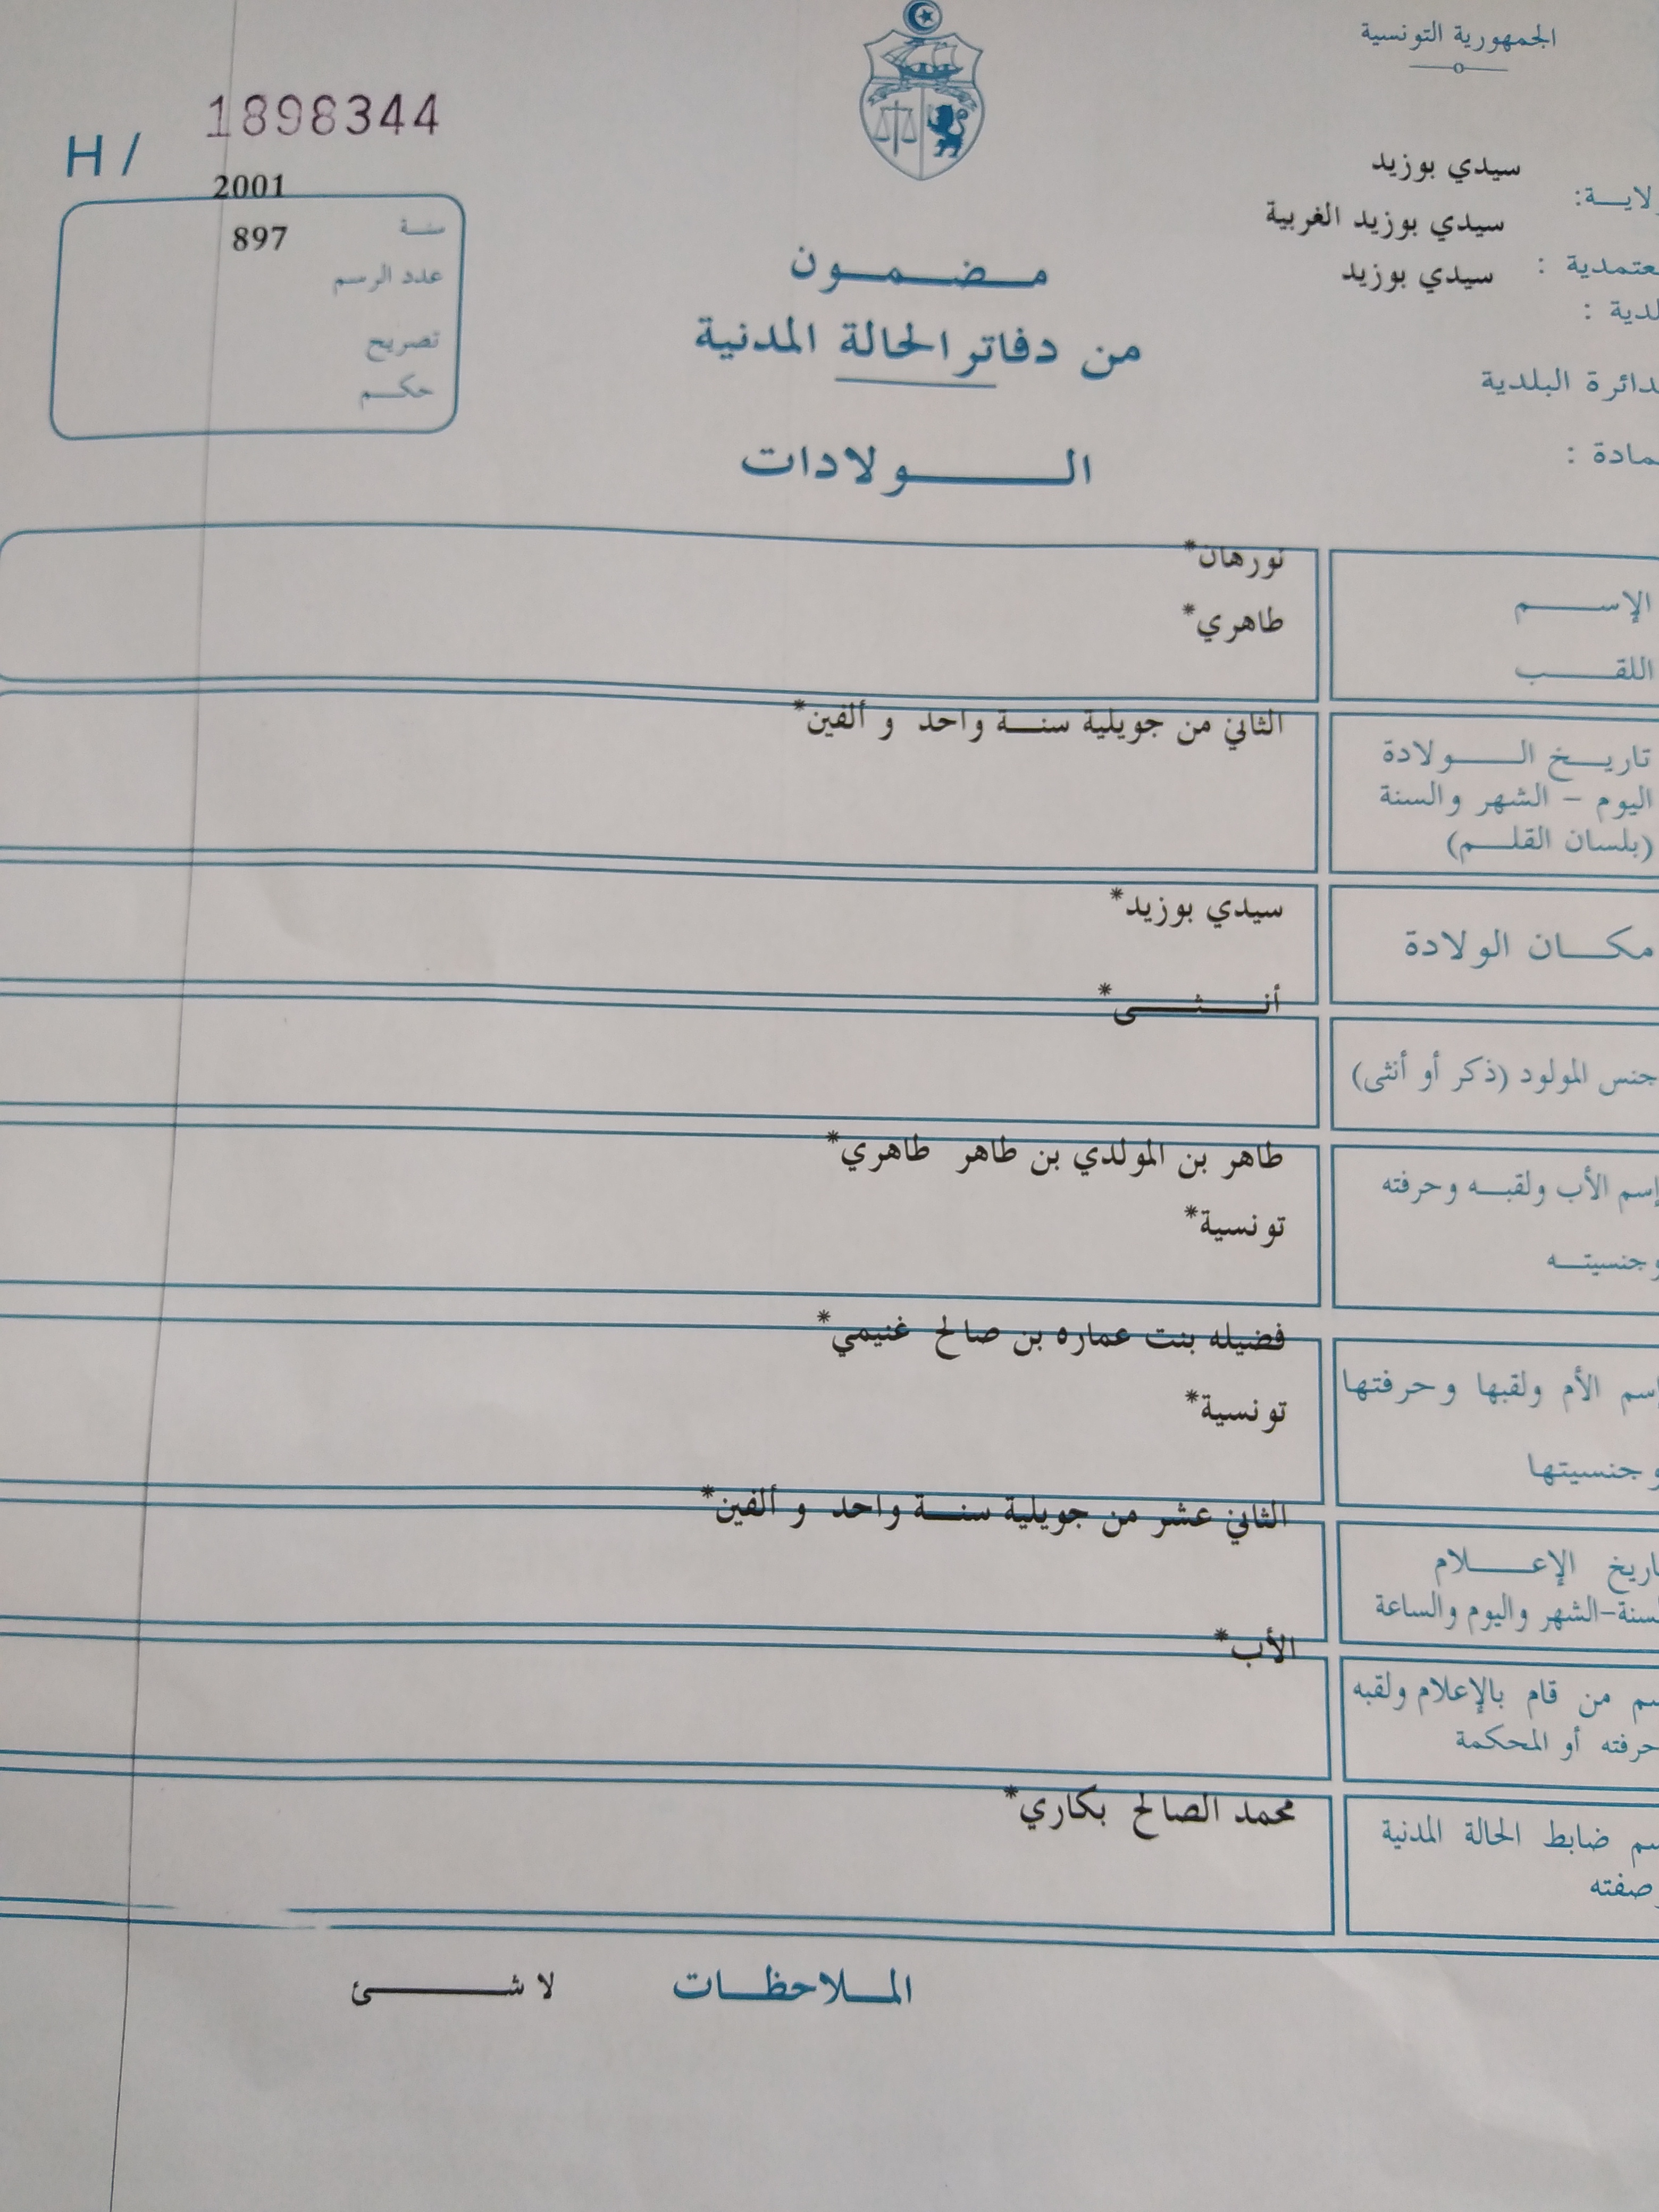 الجمهورية التونسية
H / 1898344
سيدي بوزيد
سيدي بوزيد الغربية
سيدي بوزيد
2001
سنة 897
عدد الرسم
تصريح
حكم
مضمون
من دفاتر الحالة المدنية
الولادات
الدائرة البلدية
الإسم
نورهان*
اللقب
طاهري*
تاريخ الولادة
اليوم - الشهر والسنة
(بلسان القلم)
الثاني من جويلية سنة واحد و ألفين*
مكان الولادة
سيدي بوزيد*
جنس المولود (ذكر أو أنثى)
أنثى*
إسم الأب ولقبه وحرفته
وجنسيته
طاهر بن المولدي بن طاهر طاهري*
تونسية*
إسم الأم ولقبها وحرفتها
وجنسيتها
فضيله بنت عماره بن صالح غنيمي*
تونسية*
تاريخ الإعلام
السنة-الشهر واليوم والساعة
الثاني عشر من جويلية سنة واحد و ألفين*
إسم من قام بالإعلام ولقبه
وحرفته أو المحكمة
الأب*
إسم ضابط الحالة المدنية
وصفته
محمد الصالح بكاري*
الملاحظات لا شئ